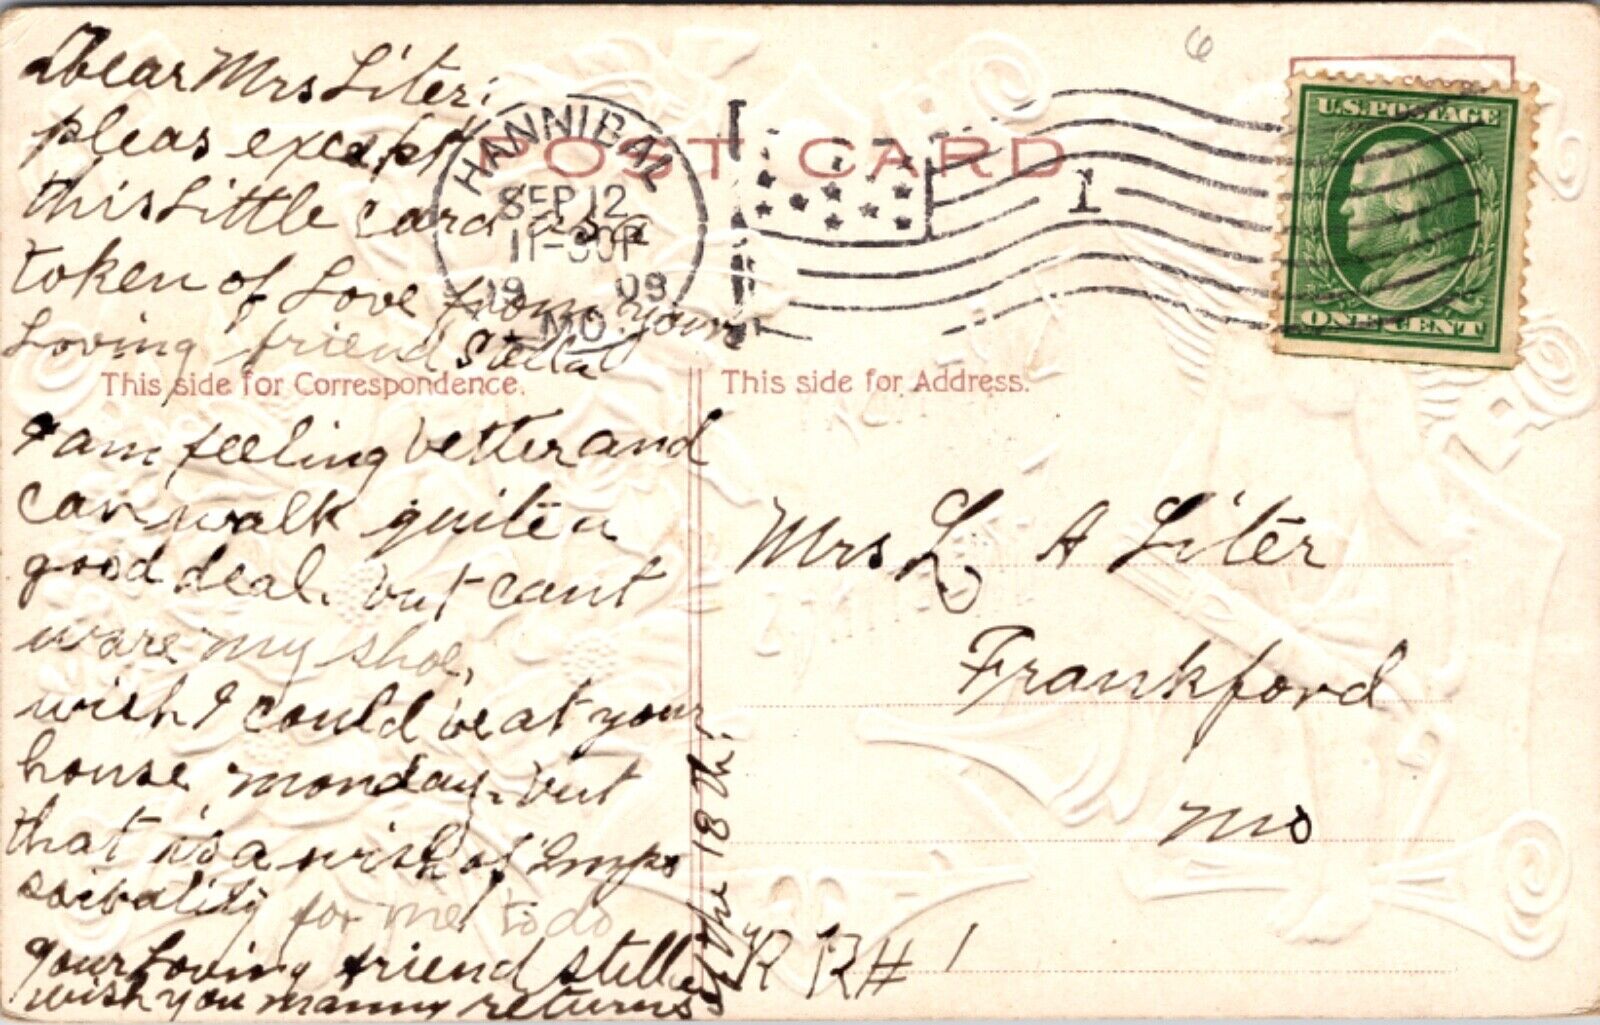 Dear Mrs Liter;
pleas except
this Little card as a
token of Love from your
Loving friend Stella
This side for Correspondence.
I am feeling better and
can walk quite a
good deal. but cant
ware my shoe,
wish I could be at your
house monday. but
that is a wish of Imps
soibality for me to do
your Loving friend Stella
wish you manny returns
of the 18th!
POST CARD
HANNIBAL
SEP 12
11-30P
1909
MO.
1
6
U.S. POSTAGE
ONE CENT
This side for Address.
Mrs L A Liter
Frankford
Mo
R R # 1